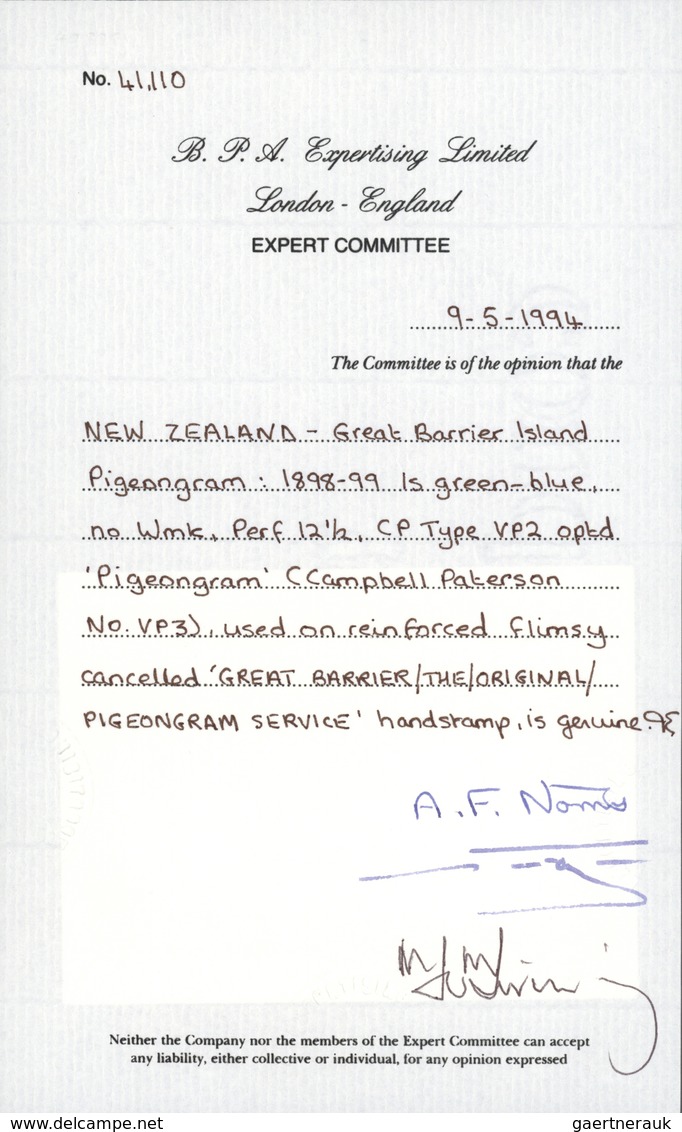 No. 41,110
B. P. A. Expertising Limited
London - England
EXPERT COMMITTEE
9-5-1994
The Committee is of the opinion that the
NEW ZEALAND - Great Barrier Island
Pigeongram : 1898-99 1s green-blue,
no Wmk, Perf 12½, CP Type VP2 optd
'Pigeongram' (Campbell Paterson
No. VP3), used on reinforced flimsy
cancelled 'GREAT BARRIER/THE/ORIGINAL/
PIGEONGRAM SERVICE' handstamp, is genuine.
A. F. Norris
Neither the Company nor the members of the Expert Committee can accept
any liability, either collective or individual, for any opinion expressed
www.delcampe.net
gaertnerauk